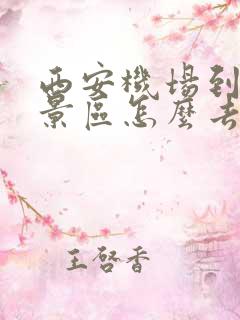 西安機場到
景區怎麼去
王啓香